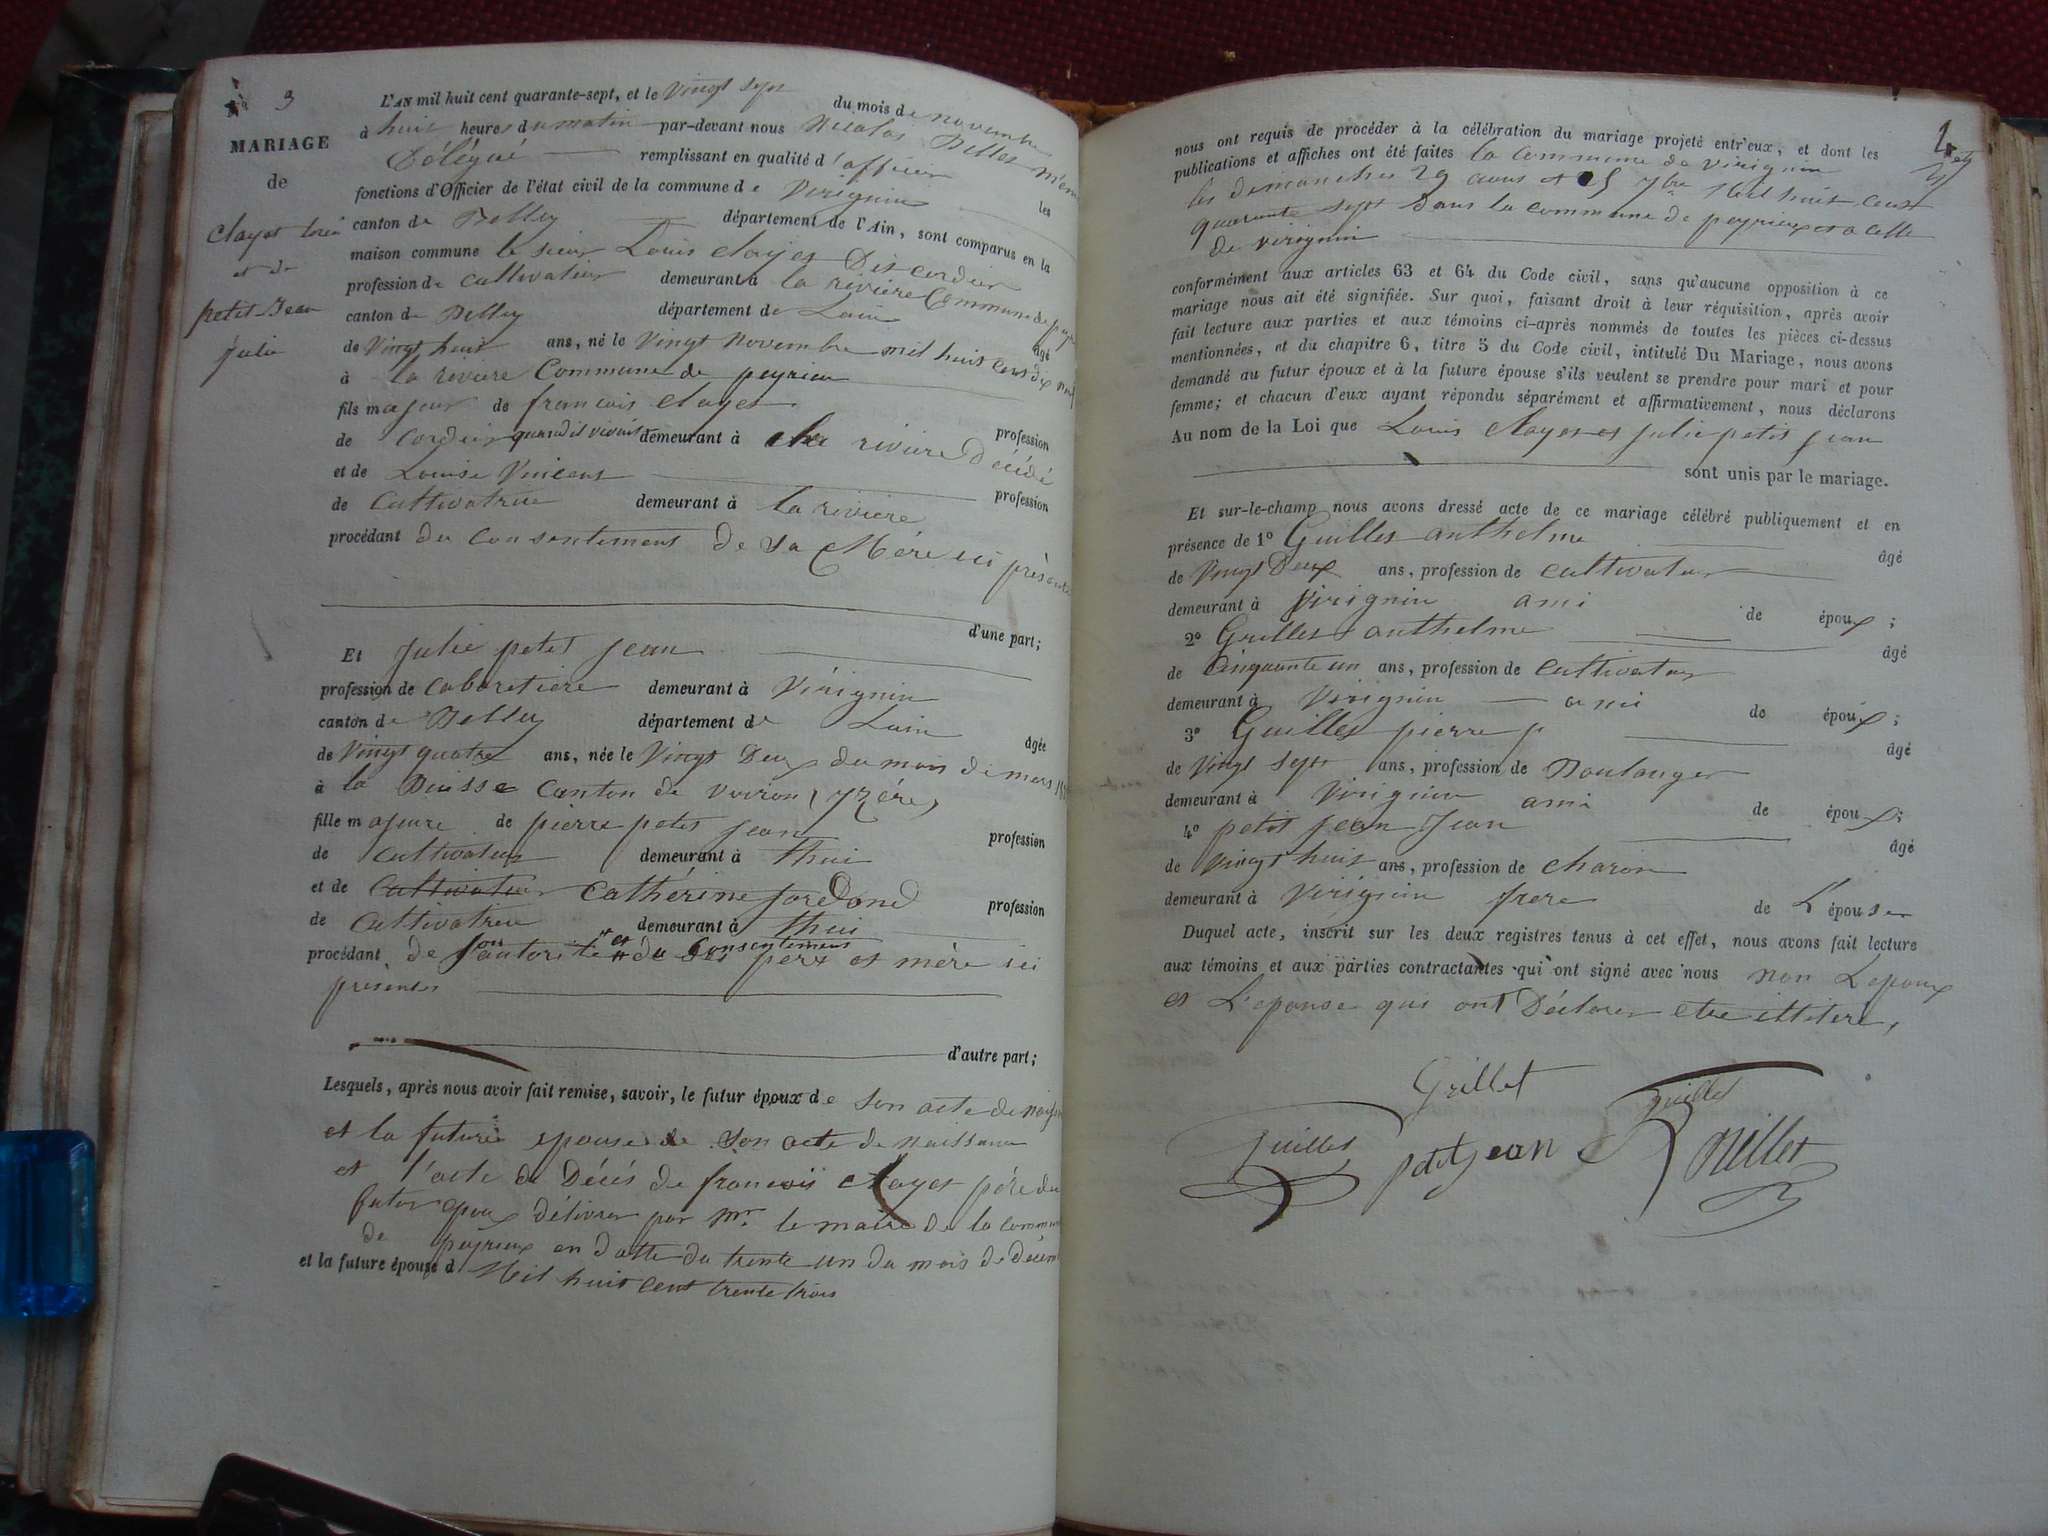 3
MARIAGE
de
et de
petit Jean
julie
L'AN mil huit cent quarante-sept, et le Vingt Sept du mois de novembre
à huit heures du matin par-devant nous Nicolas Billet
Délégué remplissant en qualité d'officier les
fonctions d'Officier de l'état civil de la commune de Virignin
canton de Belley département de l'Ain, sont comparus en la
maison commune le sieur Louis Clayet Dit cordier
profession de cultivateur demeurant à la riviere Commune de
canton de Belley département de Lain âgé
de Vingt huit ans, né le Vingt Novembre mil huit cent dix neuf
à la reviere Commune de peyrieu
fils majeur de francois Clayet profession
de Cordier quand il vivait demeurant à la riviere Décédé
et de Louise Vincent profession
de Cultivatrice demeurant à la riviere
procédant du Consentement de Sa Mére ici présente
d'une part;
Et Julie petit Jean
profession de Cabaretiere demeurant à Virignin
canton de Belley département de Lain âgée
de Vingt quatre ans, née le Vingt Deux du mois de mars
à la Buisse Canton de Voiron (yzére)
fille majeure de pierre petit Jean profession
de Cultivateur demeurant à thui
et de Cultivateur Cathérine profession
de Cultivatrice demeurant à thui
procédant de Son autorité et du Consentement Des pere et mère ici
présents
d'autre part;
Lesquels, après nous avoir fait remise, savoir, le futur époux de Son acte de
et la future epouse de Son acte de naissance
et l'acte de Décés de francois Clayet pére du
futur epoux délivrer par Mr le maire de la commune
de peyrieux en datte du trente un du mois de
et la future épouse d Mil huit cent trente trois
2
nous ont requis de procéder à la célébration du mariage projeté entr'eux, et dont les
publications et affiches ont été faites la Commune de Virignin
les dimanches 29 aout et 5 7bre Mil huit cent
quarante sept Dans la commune de peyrieux et a celle
de virignin
conformément aux articles 63 et 64 du Code civil, sans qu'aucune opposition à ce
mariage nous ait été signifiée. Sur quoi, faisant droit à leur réquisition, après avoir
fait lecture aux parties et aux témoins ci-après nommés de toutes les pièces ci-dessus
mentionnées, et du chapitre 6, titre 5 du Code civil, intitulé Du Mariage, nous avons
demandé au futur époux et à la future épouse s'ils veulent se prendre pour mari et pour
femme; et chacun d'eux ayant répondu séparément et affirmativement, nous déclarons
Au nom de la Loi que Louis Clayet et julie petit jean
sont unis par le mariage.
Et sur-le-champ nous avons dressé acte de ce mariage célébré publiquement et en
présence de 1º Guillet anthelme âgé
de Vingt Deux ans, profession de cultivateur
demeurant à Virignin ami de époux;
2º Grillet anthelme âgé
de Cinquante un ans, profession de cultivateur
demeurant à Virignin ami de époux;
3º Guillet pierre âgé
de Vingt Sept ans, profession de Boulanger
demeurant à Virignin ami de époux;
4º petit Jean Jean âgé
de Vingt huit ans, profession de charon
demeurant à Virignin frere de L'épouse
Duquel acte, inscrit sur les deux registres tenus à cet effet, nous avons fait lecture
aux témoins et aux parties contractantes qui ont signé avec nous non Lepoux
et L'epouse qui ont Déclarer etre illitere,
Grillet
Guillet
Guillet petitjean Billet